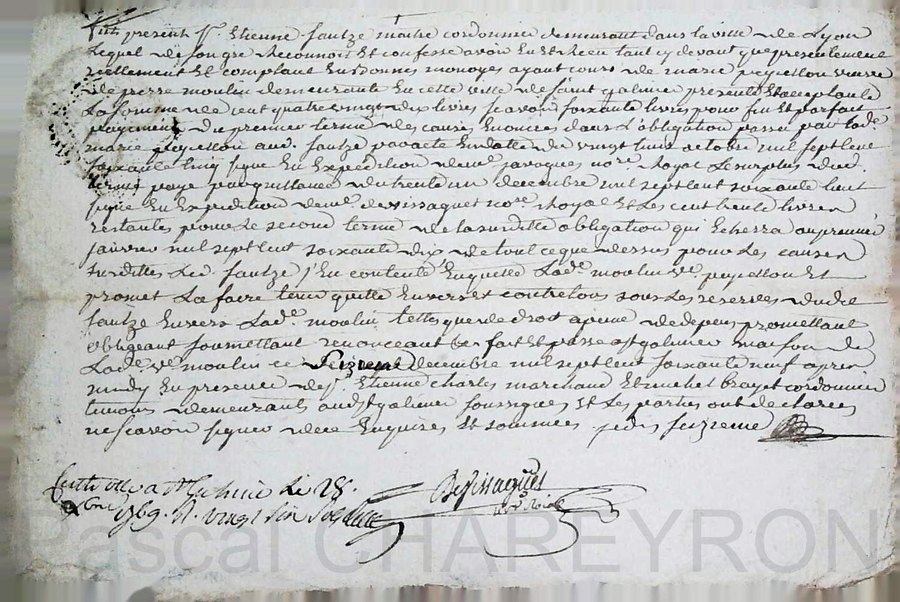 fut présent Sr. Etienne fautze maitre cordonnier demeurant dans la ville de Lyon
Lequel de son gre Reconnoit Et confesse avoir Eu Et Receu tant cy devant que presentement
reellement Et comptant En bonnes monoyes ayant cours de marie peycellon veuve
de pierre moulin demeurante En cette ville de saint galmier presente Et acceptante
La somme de cent quatre vingt dix livres scavoir soixante livres pour fin Et parfait
payement du premier terme des causes Enoncées dans L'obligation passée par lade.
marie peycellon aud. fautze par acte En datte du vingt huit octobre mil sept cent
soixante cinq signe En Expedition de me. javogues nore. Royal Le surplus dud.
terme paye par quittance du trente un decembre mil sept cent soixante huit
signe En Expedition de me. devissaguet nore. Royal Et Les cent trente livres
restantes pour Le second terme de la susditte obligation qui Echerra au premier
janvier mil sept cent soixante dix de tout ce que dessus pour Les causes
susdittes Led. fautze s'En contente En quitte Lade. moulin ve. peycellon Et
promet La faire tenir quitte Envers Et contre tous sous Les reserves dudit
fautze Envers Lade. moulin telles que de droit a peine de depens promettant
obligeant soumettant renonceant &er fait Et passe a st galmier maison de
Lade. ve. moulin ce seizieme decembre mil sept cent soixante neuf apres
midy En presence de sr. Etienne charles marchand Et michel brayet cordonnier
temoins demeurants aud st galmier soussignes Et Les parties ont declarees
ne scavoir signer de ce Enquises Et sommées je dis seizieme
Cntrolle a St Galmier Le 28.
xbre 1769. R. vingt six sols
Devissaguet
nore. Roial
Pascal CHAREYRON